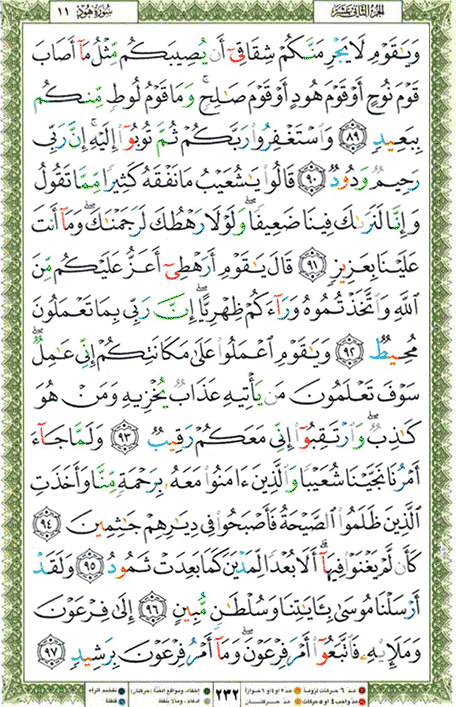 الجزء الثاني عشر
سورة هود ١١
وَيَٰقَوْمِ لَا يَجْرِمَنَّكُمْ شِقَاقِىٓ أَن يُصِيبَكُم مِّثْلُ مَآ أَصَابَ
قَوْمَ نُوحٍ أَوْ قَوْمَ هُودٍ أَوْ قَوْمَ صَٰلِحٍ ۚ وَمَا قَوْمُ لُوطٍ مِّنكُم
بِبَعِيدٍ ٨٩ وَٱسْتَغْفِرُوا۟ رَبَّكُمْ ثُمَّ تُوبُوٓا۟ إِلَيْهِ ۚ إِنَّ رَبِّى
رَحِيمٌ وَدُودٌ ٩٠ قَالُوا۟ يَٰشُعَيْبُ مَا نَفْقَهُ كَثِيرًا مِّمَّا تَقُولُ
وَإِنَّا لَنَرَىٰكَ فِينَا ضَعِيفًا ۖ وَلَوْلَا رَهْطُكَ لَرَجَمْنَٰكَ ۖ وَمَآ أَنتَ
عَلَيْنَا بِعَزِيزٍ ٩١ قَالَ يَٰقَوْمِ أَرَهْطِىٓ أَعَزُّ عَلَيْكُم مِّنَ
ٱللَّهِ وَٱتَّخَذْتُمُوهُ وَرَآءَكُمْ ظِهْرِيًّا ۖ إِنَّ رَبِّى بِمَا تَعْمَلُونَ
مُحِيطٌ ٩٢ وَيَٰقَوْمِ ٱعْمَلُوا۟ عَلَىٰ مَكَانَتِكُمْ إِنِّى عَٰمِلٌ ۖ
سَوْفَ تَعْلَمُونَ مَن يَأْتِيهِ عَذَابٌ يُخْزِيهِ وَمَنْ هُوَ
كَٰذِبٌ ۖ وَٱرْتَقِبُوٓا۟ إِنِّى مَعَكُمْ رَقِيبٌ ٩٣ وَلَمَّا جَآءَ
أَمْرُنَا نَجَّيْنَا شُعَيْبًا وَٱلَّذِينَ ءَامَنُوا۟ مَعَهُۥ بِرَحْمَةٍ مِّنَّا وَأَخَذَتِ
ٱلَّذِينَ ظَلَمُوا۟ ٱلصَّيْحَةُ فَأَصْبَحُوا۟ فِى دِيَٰرِهِمْ جَٰثِمِينَ ٩٤
كَأَن لَّمْ يَغْنَوْا۟ فِيهَآ ۗ أَلَا بُعْدًا لِّمَدْيَنَ كَمَا بَعِدَتْ ثَمُودُ ٩٥ وَلَقَدْ
أَرْسَلْنَا مُوسَىٰ بِـَٔايَٰتِنَا وَسُلْطَٰنٍ مُّبِينٍ ٩٦ إِلَىٰ فِرْعَوْنَ
وَمَلَإِي۟هِۦ فَٱتَّبَعُوٓا۟ أَمْرَ فِرْعَوْنَ ۖ وَمَآ أَمْرُ فِرْعَوْنَ بِرَشِيدٍ ٩٧
مد ٦ حركات لزوماً
مد ٢ أو ٤ أو ٦ جوازاً
إخفاء، ومواقع الغنة (حركتان)
تفخيم الراء
مد واجب ٤ أو ٥ حركات
مد حركتان
٢٣٢
إدغام، وما لا يلفظ
قلقلة